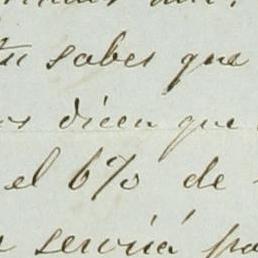 tu sabes que
dicen que
el 6% de
servirá